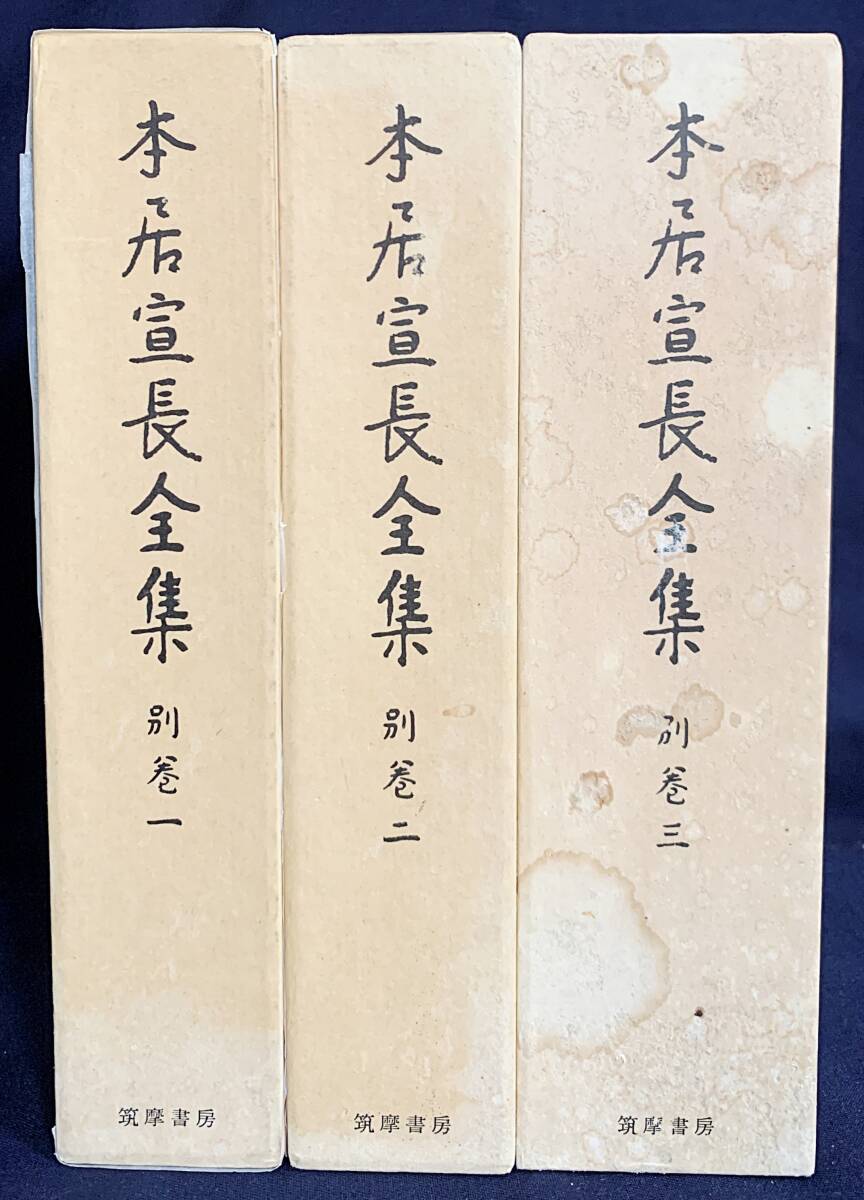 本居宣長全集 別巻一
筑摩書房
本居宣長全集 別巻二
筑摩書房
本居宣長全集 別巻三
筑摩書房